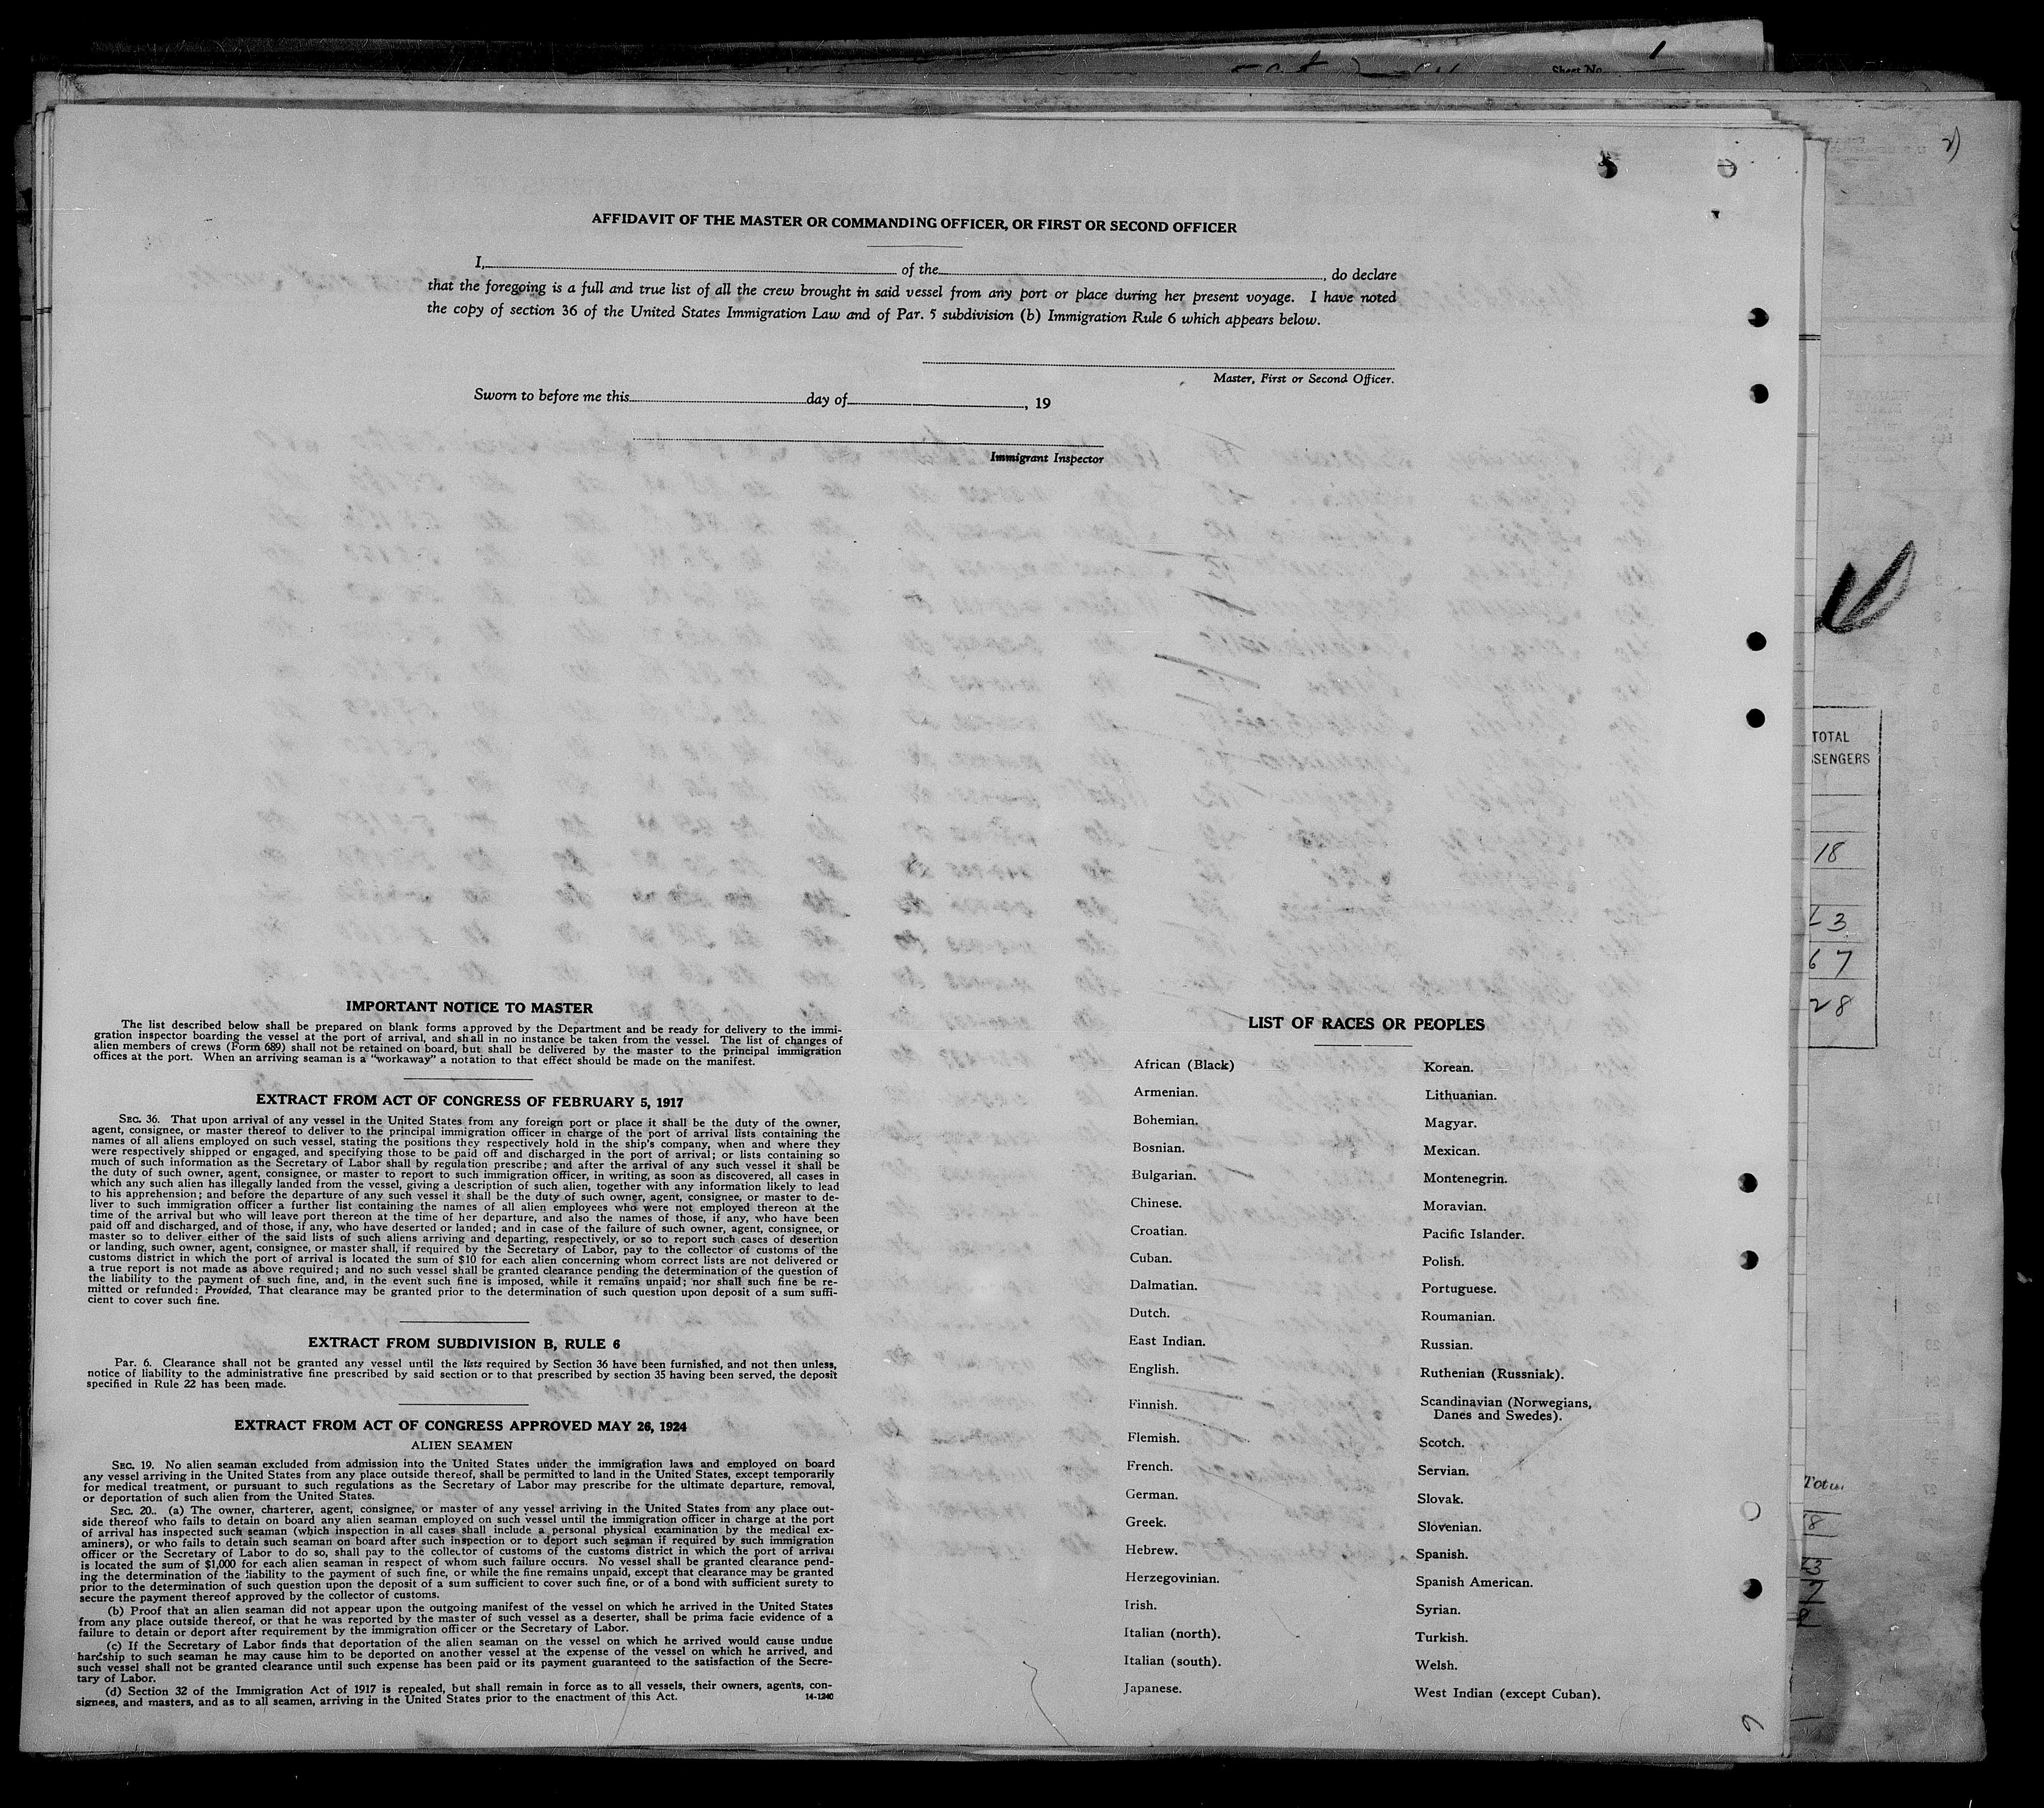 Sheet No. 1
AFFIDAVIT OF THE MASTER OR COMMANDING OFFICER, OR FIRST OR SECOND OFFICER
I, of the , do declare
that the foregoing is a full and true list of all the crew brought in said vessel from any port or place during her present voyage. I have noted
the copy of section 36 of the United States Immigration Law and of Par. 5 subdivision (b) Immigration Rule 6 which appears below.
Master, First or Second Officer.
Sworn to before me this day of , 19
Immigrant Inspector
IMPORTANT NOTICE TO MASTER
The list described below shall be prepared on blank forms approved by the Department and be ready for delivery to the immi-
gration inspector boarding the vessel at the port of arrival, and shall in no instance be taken from the vessel. The list of changes of
alien members of crews (Form 689) shall not be retained on board, but shall be delivered by the master to the principal immigration
offices at the port. When an arriving seaman is a "workaway" a notation to that effect should be made on the manifest.
EXTRACT FROM ACT OF CONGRESS OF FEBRUARY 5, 1917
SEC. 36. That upon arrival of any vessel in the United States from any foreign port or place it shall be the duty of the owner,
agent, consignee, or master thereof to deliver to the principal immigration officer in charge of the port of arrival lists containing the
names of all aliens employed on such vessel, stating the positions they respectively hold in the ship's company, when and where they
were respectively shipped or engaged, and specifying those to be paid off and discharged in the port of arrival; or lists containing so
much of such information as the Secretary of Labor shall by regulation prescribe; and after the arrival of any such vessel it shall be
the duty of such owner, agent, consignee, or master to report to such immigration officer, in writing, as soon as discovered, all cases in
which any such alien has illegally landed from the vessel, giving a description of such alien, together with any information likely to lead
to his apprehension; and before the departure of any such vessel it shall be the duty of such owner, agent, consignee, or master to de-
liver to such immigration officer a further list containing the names of all alien employees who were not employed thereon at the
time of the arrival but who will leave port thereon at the time of her departure, and also the names of those, if any, who have been
paid off and discharged, and of those, if any, who have deserted or landed; and in case of the failure of such owner, agent, consignee, or
master so to deliver either of the said lists of such aliens arriving and departing, respectively, or so to report such cases of desertion
or landing, such owner, agent, consignee, or master shall, if required by the Secretary of Labor, pay to the collector of customs of the
customs district in which the port of arrival is located the sum of $10 for each alien concerning whom correct lists are not delivered or
a true report is not made as above required; and no such vessel shall be granted clearance pending the determination of the question of
the liability to the payment of such fine, and, in the event such fine is imposed, while it remains unpaid; nor shall such fine be re-
mitted or refunded: Provided, That clearance may be granted prior to the determination of such question upon deposit of a sum suffi-
cient to cover such fine.
EXTRACT FROM SUBDIVISION B, RULE 6
Par. 6. Clearance shall not be granted any vessel until the lists required by Section 36 have been furnished, and not then unless,
notice of liability to the administrative fine prescribed by said section or to that prescribed by section 35 having been served, the deposit
specified in Rule 22 has been made.
EXTRACT FROM ACT OF CONGRESS APPROVED MAY 26, 1924
ALIEN SEAMEN
SEC. 19. No alien seaman excluded from admission into the United States under the immigration laws and employed on board
any vessel arriving in the United States from any place outside thereof, shall be permitted to land in the United States, except temporarily
for medical treatment, or pursuant to such regulations as the Secretary of Labor may prescribe for the ultimate departure, removal,
or deportation of such alien from the United States.
SEC. 20.. (a) The owner, charterer, agent, consignee, or master of any vessel arriving in the United States from any place out-
side thereof who fails to detain on board any alien seaman employed on such vessel until the immigration officer in charge at the port
of arrival has inspected such seaman (which inspection in all cases shall include a personal physical examination by the medical ex-
aminers), or who fails to detain such seaman on board after such inspection or to deport such seaman if required by such immigration
officer or the Secretary of Labor to do so, shall pay to the collector of customs of the customs district in which the port of arrival
is located the sum of $1,000 for each alien seaman in respect of whom such failure occurs. No vessel shall be granted clearance pend-
ing the determination of the liability to the payment of such fine, or while the fine remains unpaid, except that clearance may be granted
prior to the determination of such question upon the deposit of a sum sufficient to cover such fine, or of a bond with sufficient surety to
secure the payment thereof approved by the collector of customs.
(b) Proof that an alien seaman did not appear upon the outgoing manifest of the vessel on which he arrived in the United States
from any place outside thereof, or that he was reported by the master of such vessel as a deserter, shall be prima facie evidence of a
failure to detain or deport after requirement by the immigration officer or the Secretary of Labor.
(c) If the Secretary of Labor finds that deportation of the alien seaman on the vessel on which he arrived would cause undue
hardship to such seaman he may cause him to be deported on another vessel at the expense of the vessel on which he arrived, and
such vessel shall not be granted clearance until such expense has been paid or its payment guaranteed to the satisfaction of the Secre-
tary of Labor.
(d) Section 32 of the Immigration Act of 1917 is repealed, but shall remain in force as to all vessels, their owners, agents, con-
signees, and masters, and as to all seamen, arriving in the United States prior to the enactment of this Act.
14-1240
LIST OF RACES OR PEOPLES
African (Black)
Armenian.
Bohemian.
Bosnian.
Bulgarian.
Chinese.
Croatian.
Cuban.
Dalmatian.
Dutch.
East Indian.
English.
Finnish.
Flemish.
French.
German.
Greek.
Hebrew.
Herzegovinian.
Irish.
Italian (north).
Italian (south).
Japanese.
Korean.
Lithuanian.
Magyar.
Mexican.
Montenegrin.
Moravian.
Pacific Islander.
Polish.
Portuguese.
Roumanian.
Russian.
Ruthenian (Russniak).
Scandinavian (Norwegians,
Danes and Swedes).
Scotch.
Servian.
Slovak.
Slovenian.
Spanish.
Spanish American.
Syrian.
Turkish.
Welsh.
West Indian (except Cuban).
TOTAL
SENGERS
18
13
67
28
Total
18
13
7